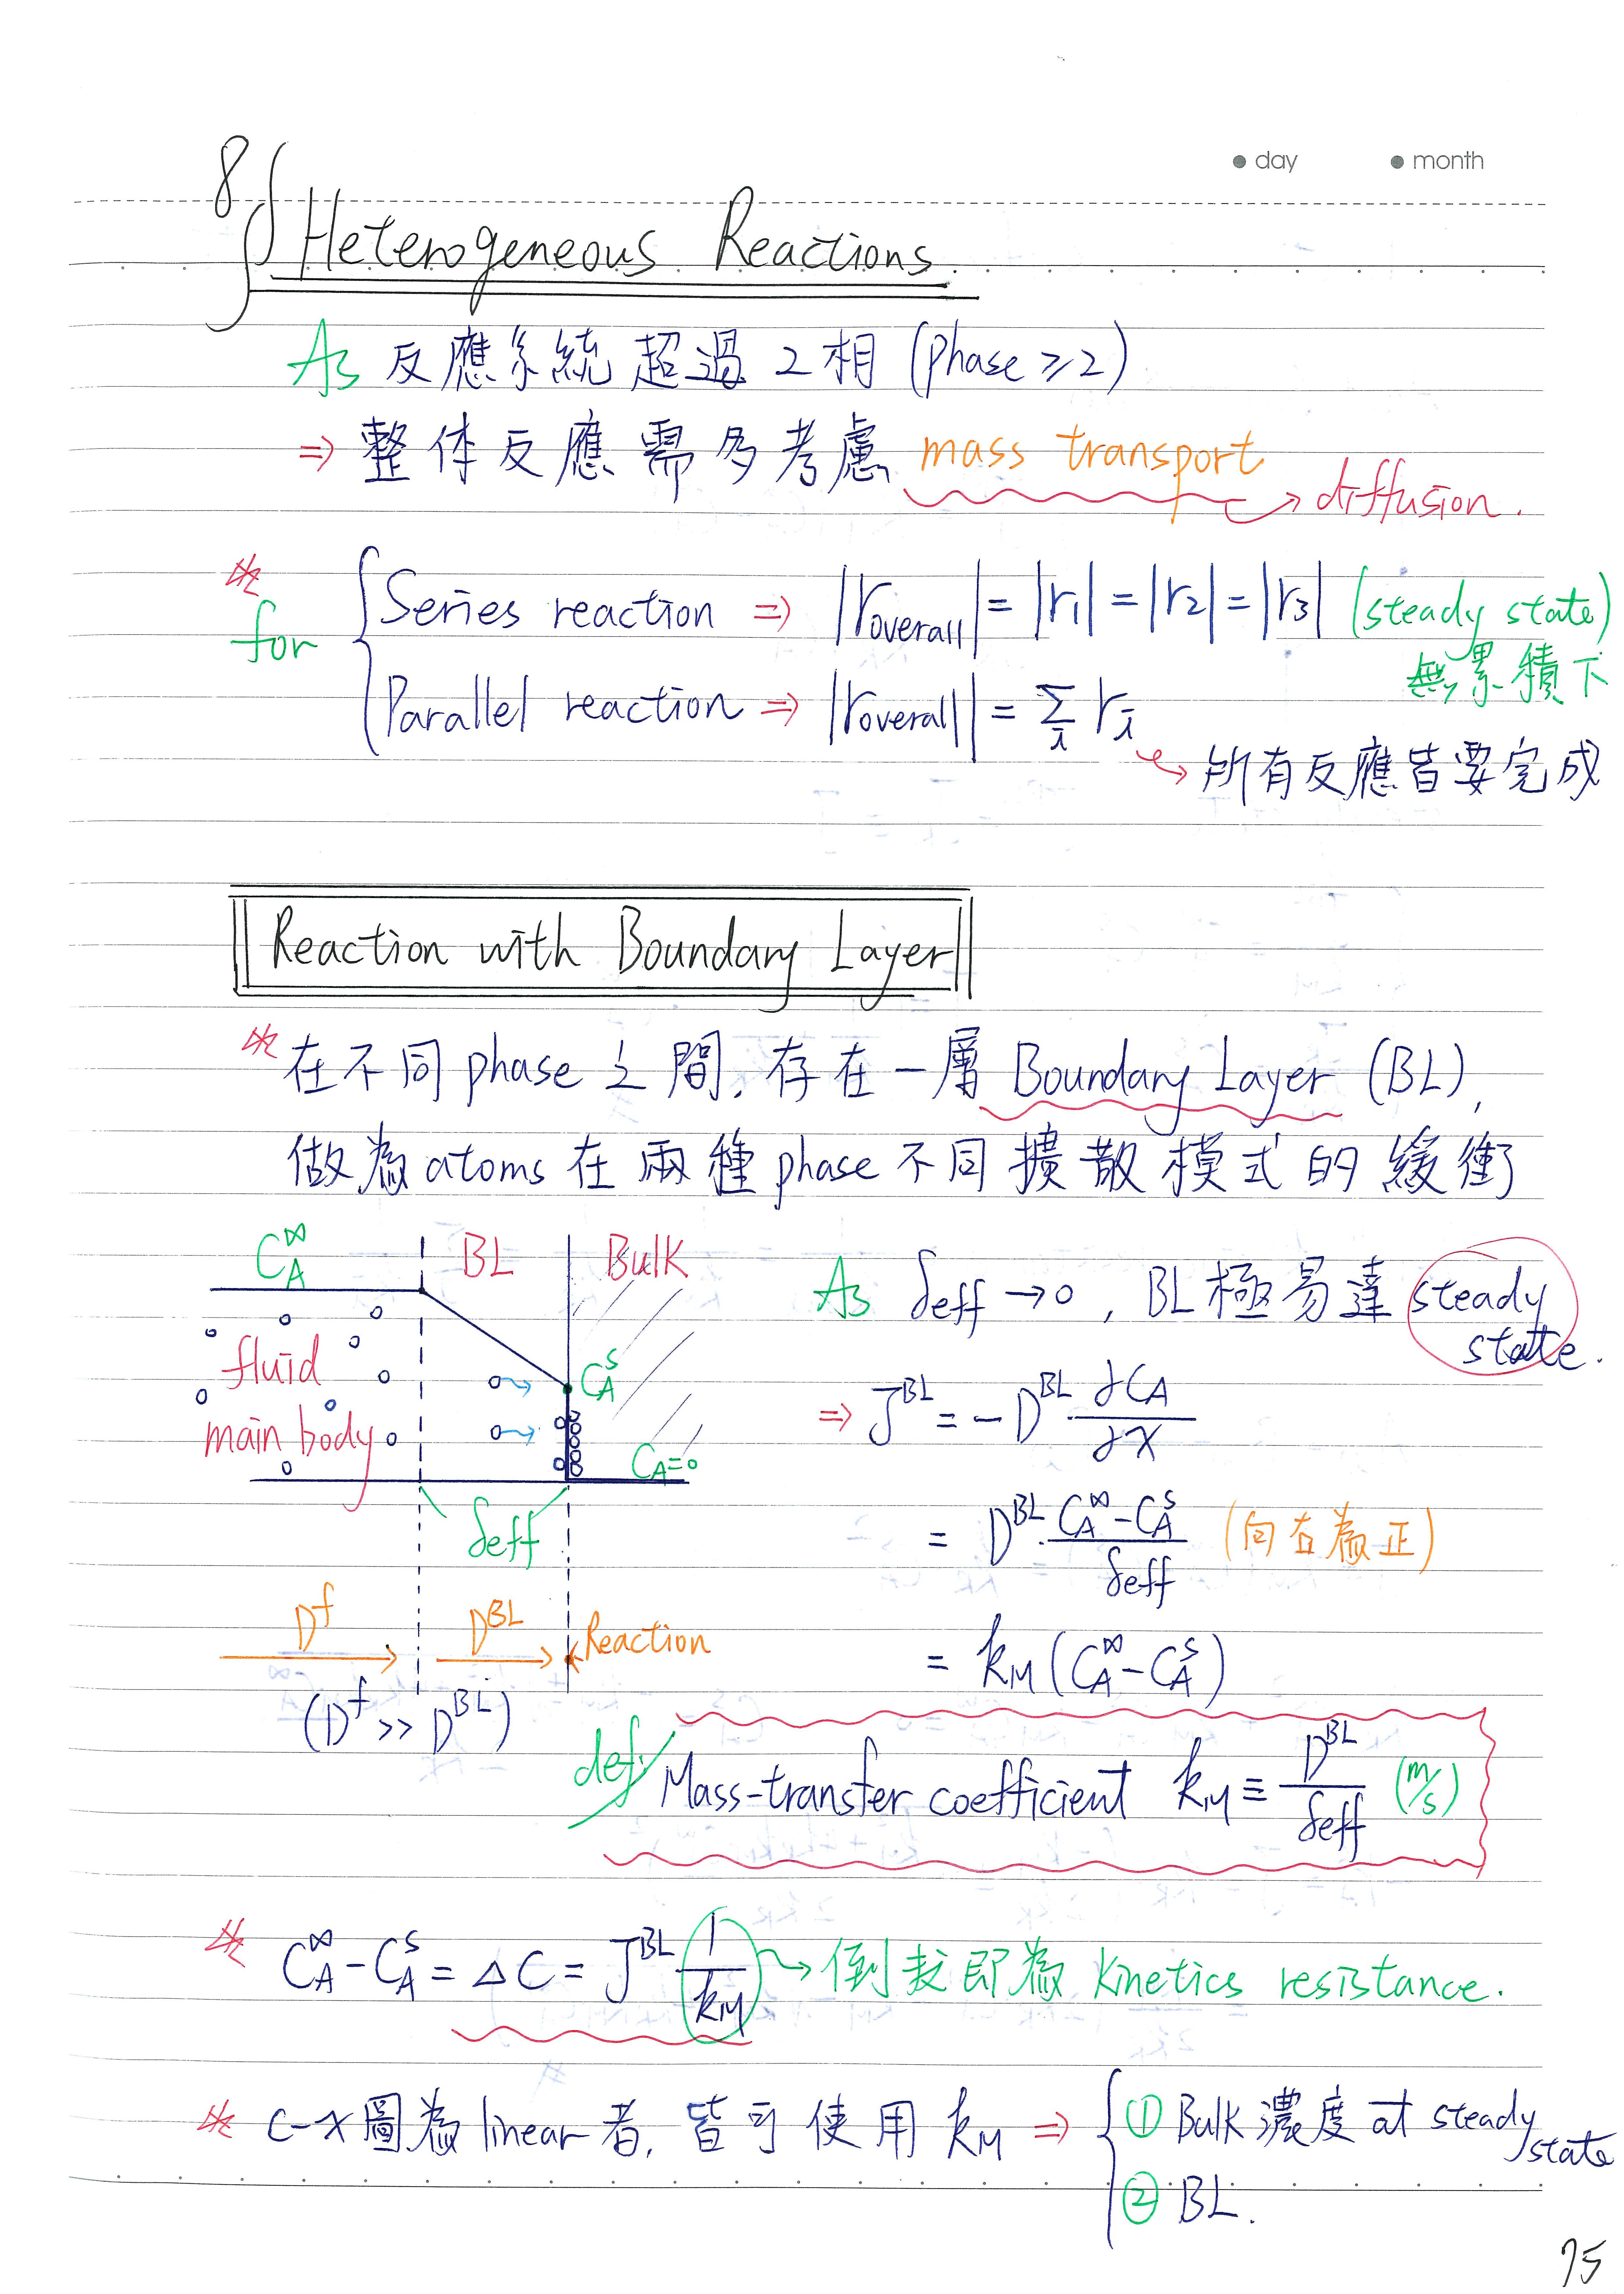 day month
8 Heterogeneous Reactions
As 反應系統超過2相 (phase ≥ 2)
⇒ 整体反應需多考慮 mass transport → diffusion.
※ for { Series reaction ⇒ |r_overall| = |r_1| = |r_2| = |r_3| (steady state)
無累積下
Parallel reaction ⇒ |r_overall| = Σ_i r_i
↪ 所有反應皆要完成
Reaction with Boundary Layer
※ 在不同 phase 之間, 存在一層 Boundary Layer (BL),
做為 atoms 在兩種 phase 不同擴散模式的緩衝
C_A^∞ BL Bulk
fluid
main body
C_A^S
C_A=0
δeff
D^f D^BL Reaction
(D^f >> D^BL)
As δeff → 0, BL 極易達 steady state.
⇒ J^BL = -D^BL ∂C_A/∂x
= D^BL · (C_A^∞ - C_A^S)/δeff (向右為正)
= k_M (C_A^∞ - C_A^S)
def/ Mass-transfer coefficient k_M ≡ D^BL/δeff (m/s)
※ C_A^∞ - C_A^S = ΔC = J^BL 1/k_M → 倒數即為 kinetics resistance.
※ C-x圖為 linear 者, 皆可使用 k_M ⇒ { ① Bulk 濃度 at steady state
② BL.
75